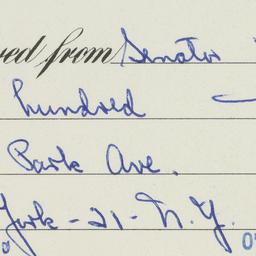 ved from Senator
hundred
Park Ave.
York - 21 - N.Y.